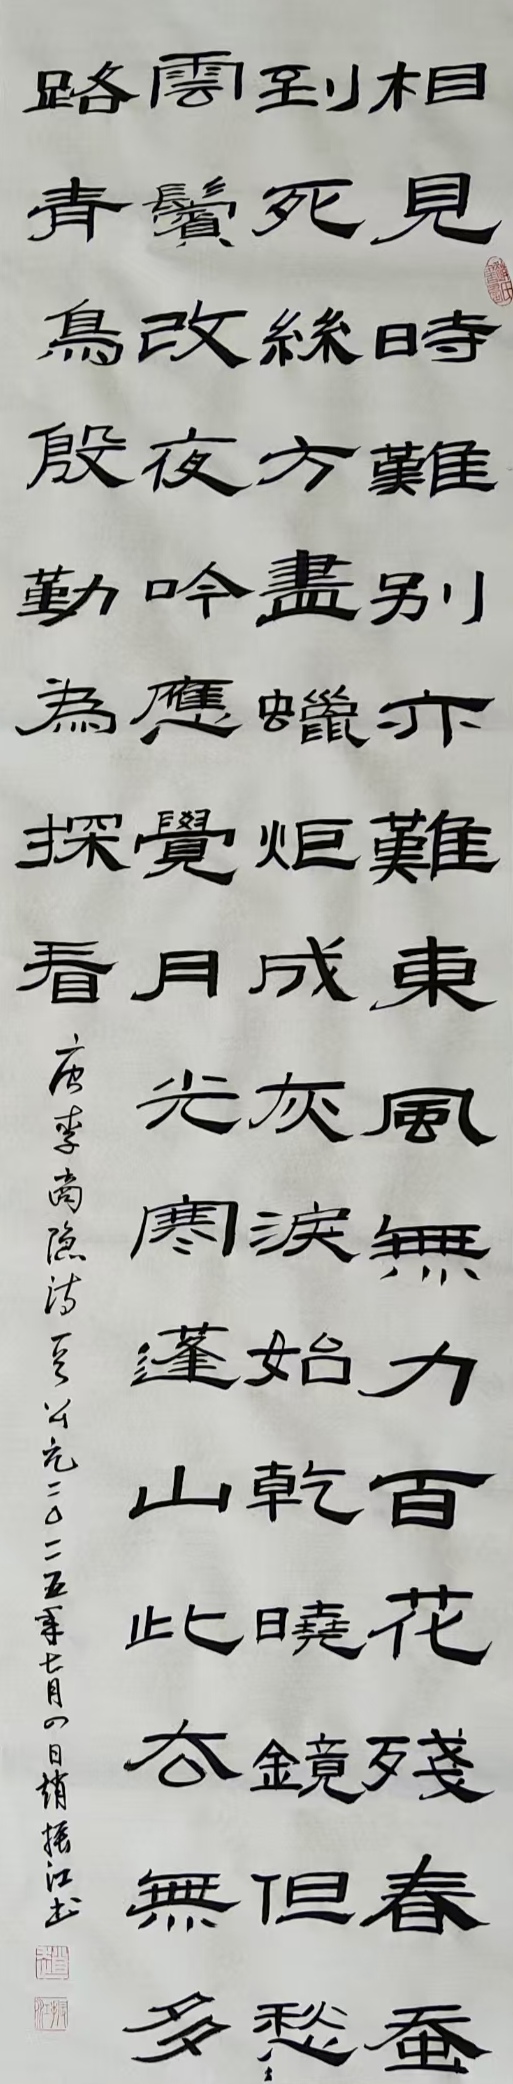 相見時難别亦難東風無力百花殘春蚕
到死絲方盡蠟炬成灰淚始乾曉鏡但愁
雲鬢改夜吟應覺月光寒蓬山此去無多
路青鳥殷勤為探看
唐李商隐詩 公元二〇二五年七月四日趙振江书